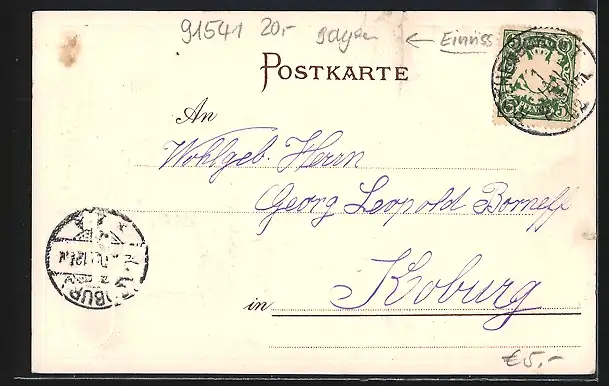 91541 20,- ← Einriss
POSTKARTE
An
Wohlgeb. Herrn
Georg Leopold Borneff
in Koburg
€5,-